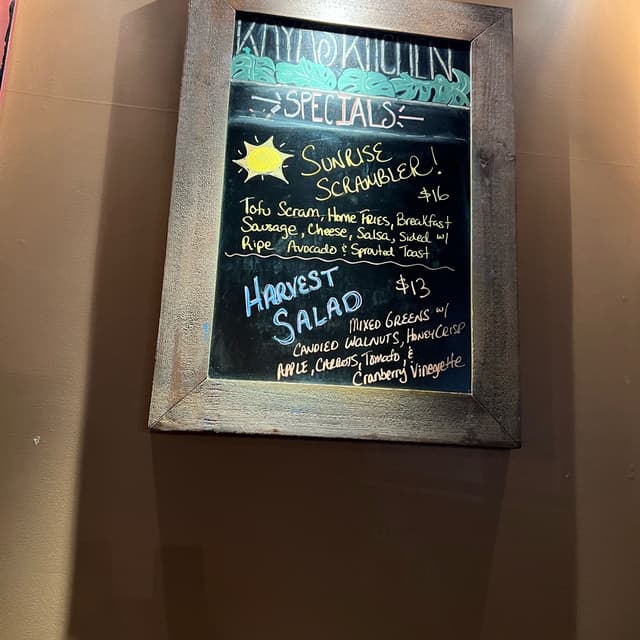 KAYA'S KITCHEN
SPECIALS
SUNRISE
SCRAMBLER!
$16
Tofu Scram, Home FRIES, Breakfast
Sausage, Cheese, Salsa, Sided w/
Ripe Avocado & Sprouted Toast
HARVEST
SALAD
$13
MIXED GREENS w/
CANDIED WALNUTS, HONEYCRISP
APPLE, CARROTS, Tomato, &
Cranberry Vinegrette